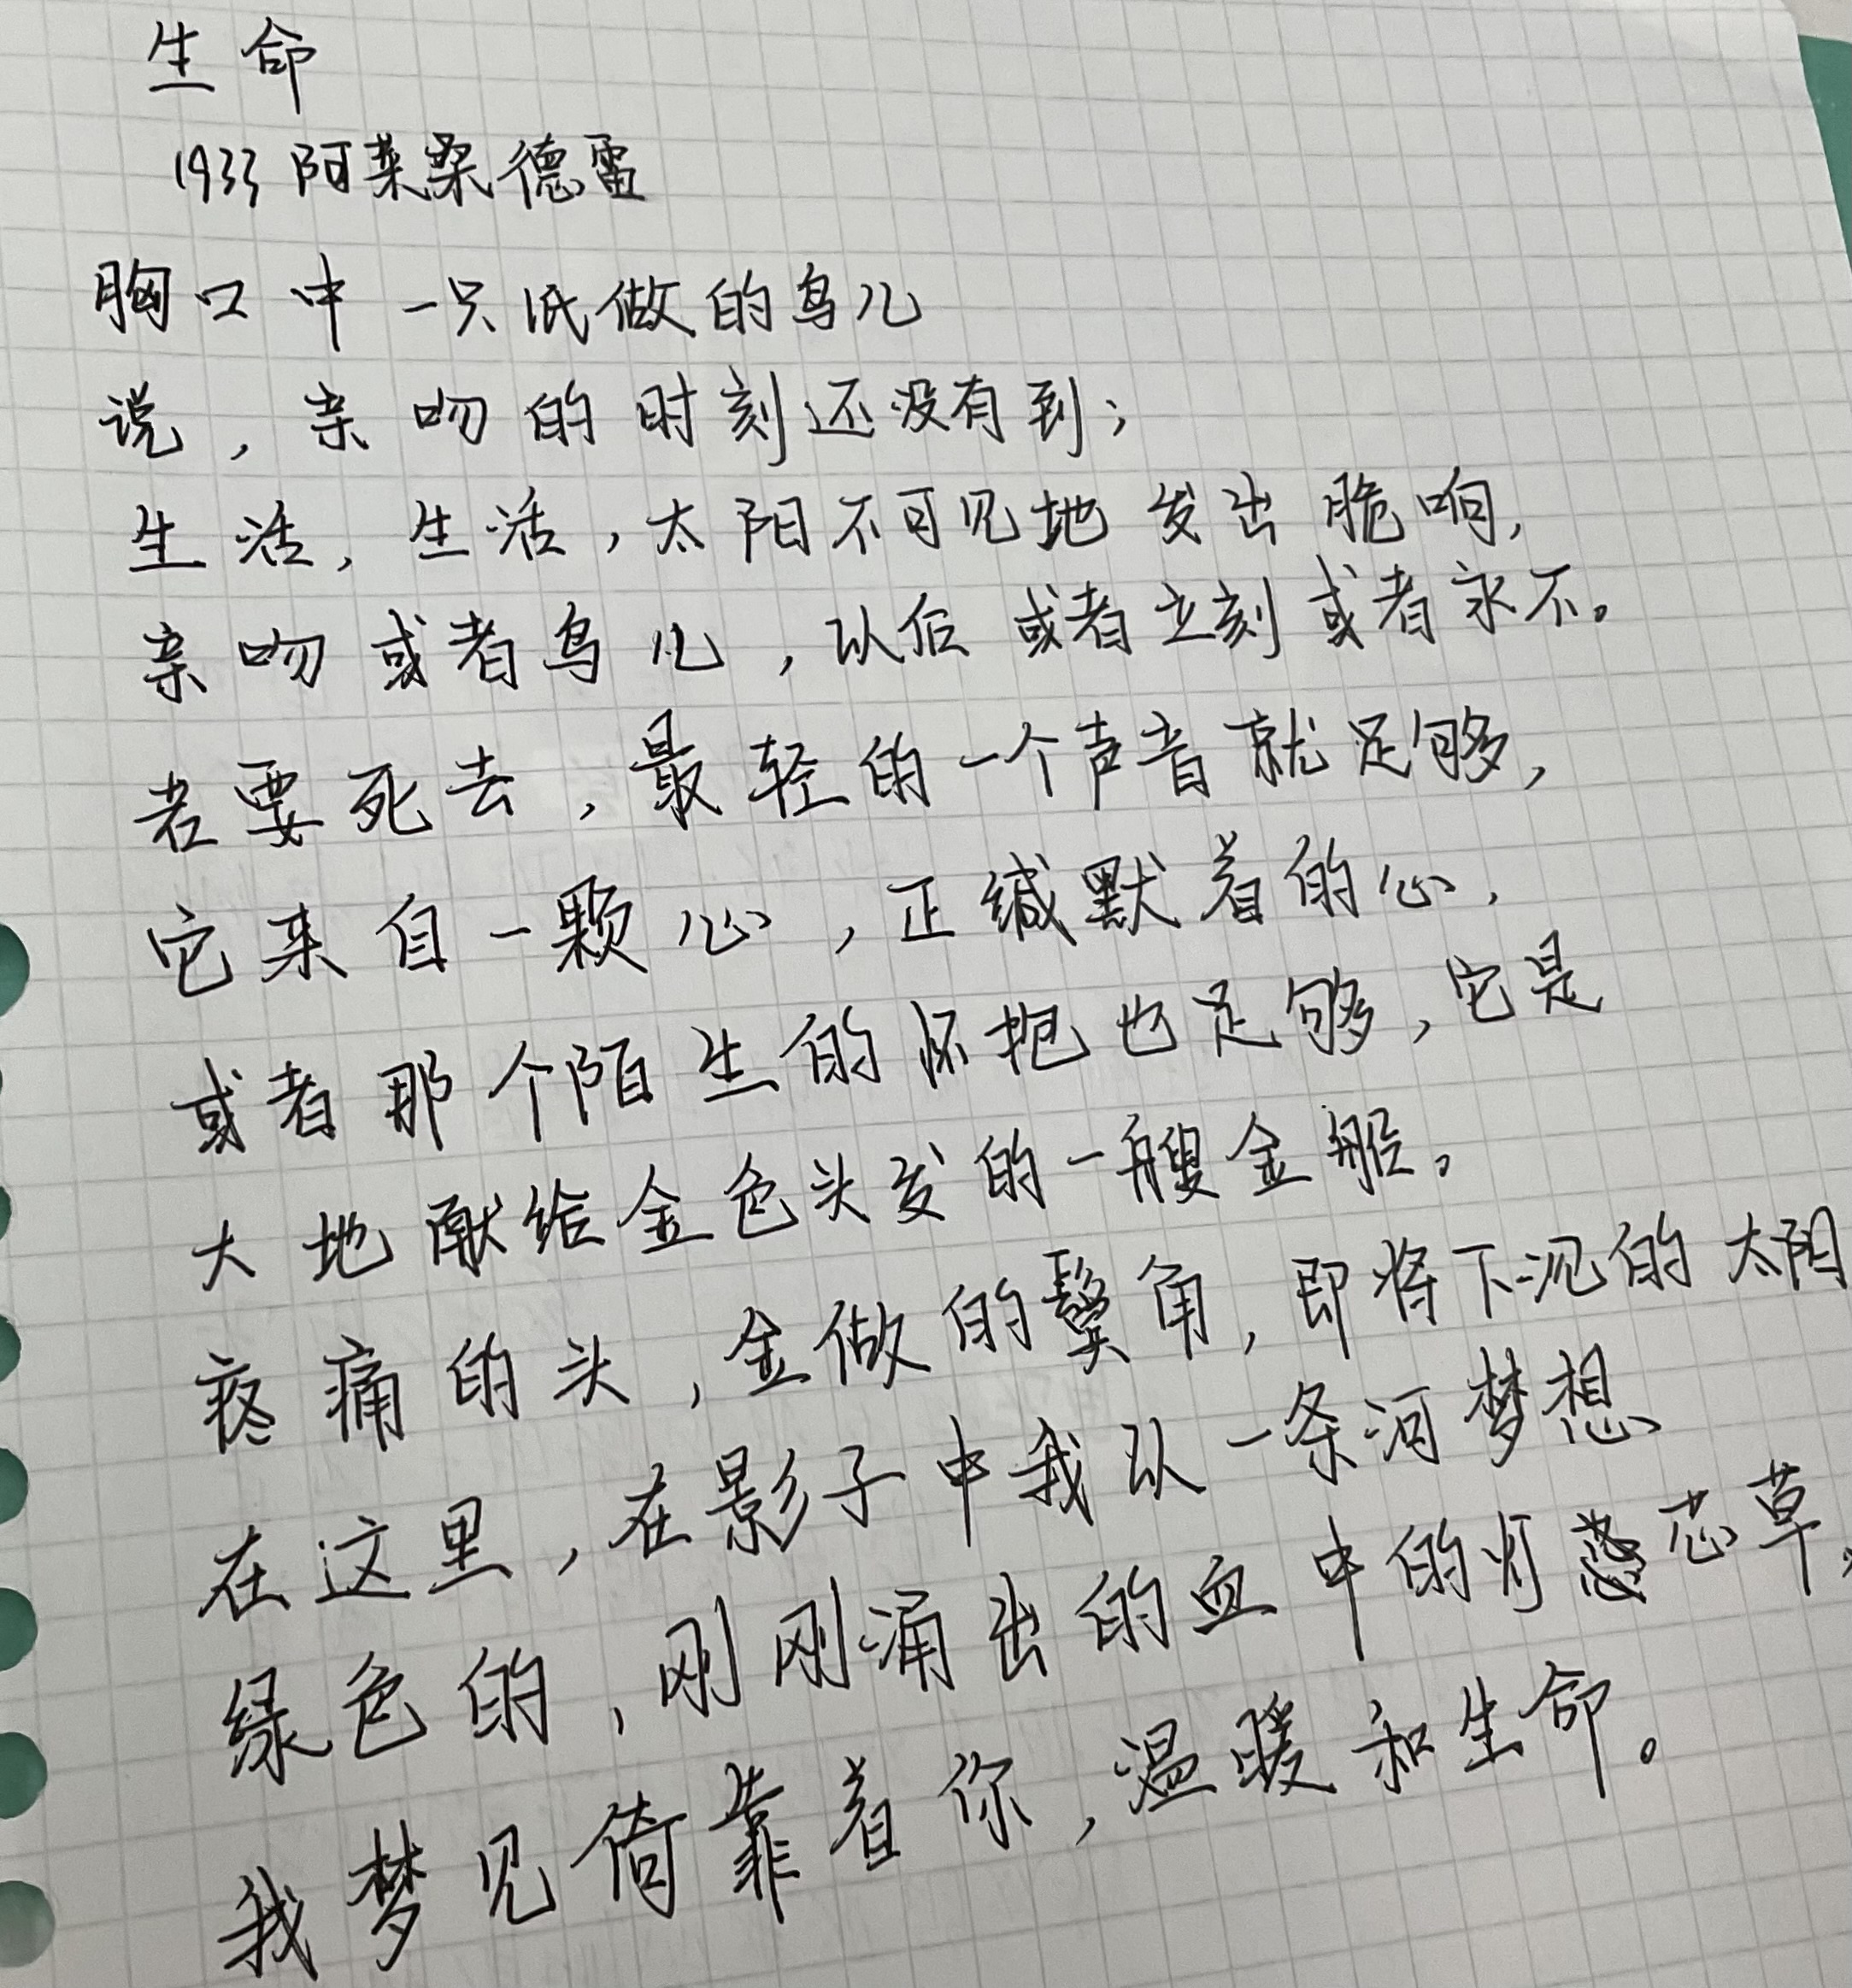 生命
1933 阿莱桑德雷
胸口中一只纸做的鸟儿
说，亲吻的时刻还没有到；
生活，生活，太阳不可见地发出脆响，
亲吻或者鸟儿，以后或者立刻或者永不。
若要死去，最轻的一个声音就足够，
它来自一颗心，正缄默着的心，
或者那个陌生的怀抱也足够，它是
大地献给金色头发的一艘金船。
疼痛的头，金做的鬓角，即将下沉的太阳
在这里，在影子中我以一条河梦想
绿色的，刚刚涌出的血中的灯芯草，
我梦见倚靠着你，温暖和生命。